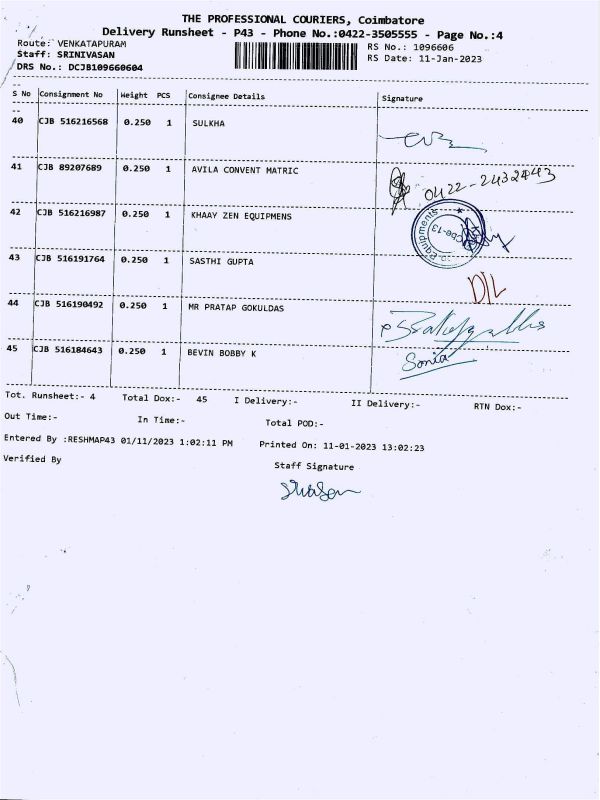 THE PROFESSIONAL COURIERS, Coimbatore
Delivery Runsheet - P43 - Phone No.:0422-3505555 - Page No.:4
Route: VENKATAPURAM
RS No.: 1096606
Staff: SRINIVASAN
RS Date: 11-Jan-2023
DRS No.: DCJB109660604
S No Consignment No Weight PCS Consignee Details Signature
40 CJB 516216568 0.250 1 SULKHA
41 CJB 89207689 0.250 1 AVILA CONVENT MATRIC 0422-2432443
42 CJB 516216987 0.250 1 KHAAY ZEN EQUIPMENS
Equipments Cbe-13
43 CJB 516191764 0.250 1 SASTHI GUPTA
44 CJB 516190492 0.250 1 MR PRATAP GOKULDAS
45 CJB 516184643 0.250 1 BEVIN BOBBY K Sonia
Tot. Runsheet:- 4 Total Dox:- 45 I Delivery:- II Delivery:- RTN Dox:-
Out Time:- In Time:- Total POD:-
Entered By :RESHMAP43 01/11/2023 1:02:11 PM Printed On: 11-01-2023 13:02:23
Verified By Staff Signature